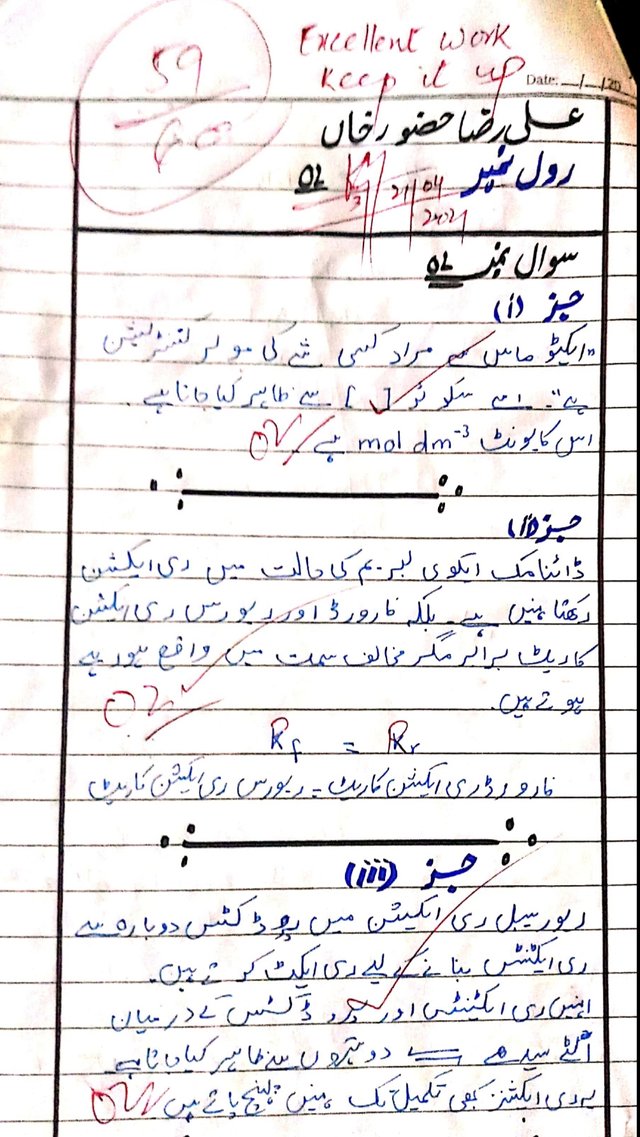 Excellent work
Keep it up
59
60
Date: __/__/20
علی رضا حضور خاں
رول نمبر 02
21/04
2021
سوال نمبر 02
جز (i)
"ایکٹو ماس سے مراد کسی شے کی مولر کنسنٹریشن
ہے"۔ اسے سکوئر [ ] سے ظاہر کیا جاتا ہے۔
اس کا یونٹ mol dm⁻³ ہے۔
02
جز (ii)
ڈائنامک ایکوی لبریم کی حالت میں ری ایکشن
رکتا نہیں ہے۔ بلکہ فارورڈ اور ریورس ری ایکشن
کا ریٹ برابر مگر مخالف سمت میں واقع ہو رہے
ہوتے ہیں۔
02
Rf = Rr
فارورڈ ری ایکشن کا ریٹ = ریورس ری ایکشن کا ریٹ
جز (iii)
ریورسیبل ری ایکشن میں پروڈکٹس دوبارہ سے
ری ایکٹنٹس بنانے کے لیے ری ایکٹ کرتے ہیں۔
انہیں ری ایکٹینٹس اور پروڈکٹس کے درمیان
الٹے سیدھے ⇌ دو تیروں سے ظاہر کیا جاتا ہے۔
یہ ری ایکشنز کبھی تکمیل تک نہیں پہنچ پاتے ہیں
02